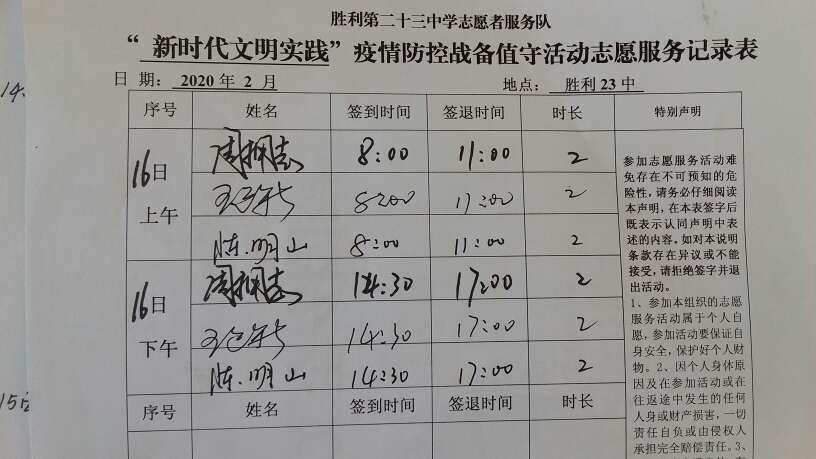 胜利第二十三中学志愿者服务队
“新时代文明实践”疫情防控战备值守活动志愿服务记录表
日 期： 2020 年 2 月 地点： 胜利 23 中
序号 姓名 签到时间 签退时间 时长 特别声明
16日 上午
周拥志 8:00 11:00 2
8:00 11:00 2
陈明山 8:00 11:00 2
16日 下午
周拥志 14:30 17:00 2
14:30 17:00 2
陈明山 14:30 17:00 2
序号 姓名 签到时间 签退时间 时长
参加志愿服务活动难
免存在不可预知的危
险性，请务必仔细阅读
本声明，在本表签字后
既表示认同声明中表
述的内容。如对本说明
条款存在异议或不能
接受，请拒绝签字并退
出活动。
1、参加本组织的志愿
服务活动属于个人自
愿，参加活动要保证自
身安全，保护好个人财
物。2、因个人身体原
因及在参加活动或在
往返途中发生的任何
人身或财产损害，一切
责任自负或由侵权人
承担完全赔偿责任。3、
14.
15日